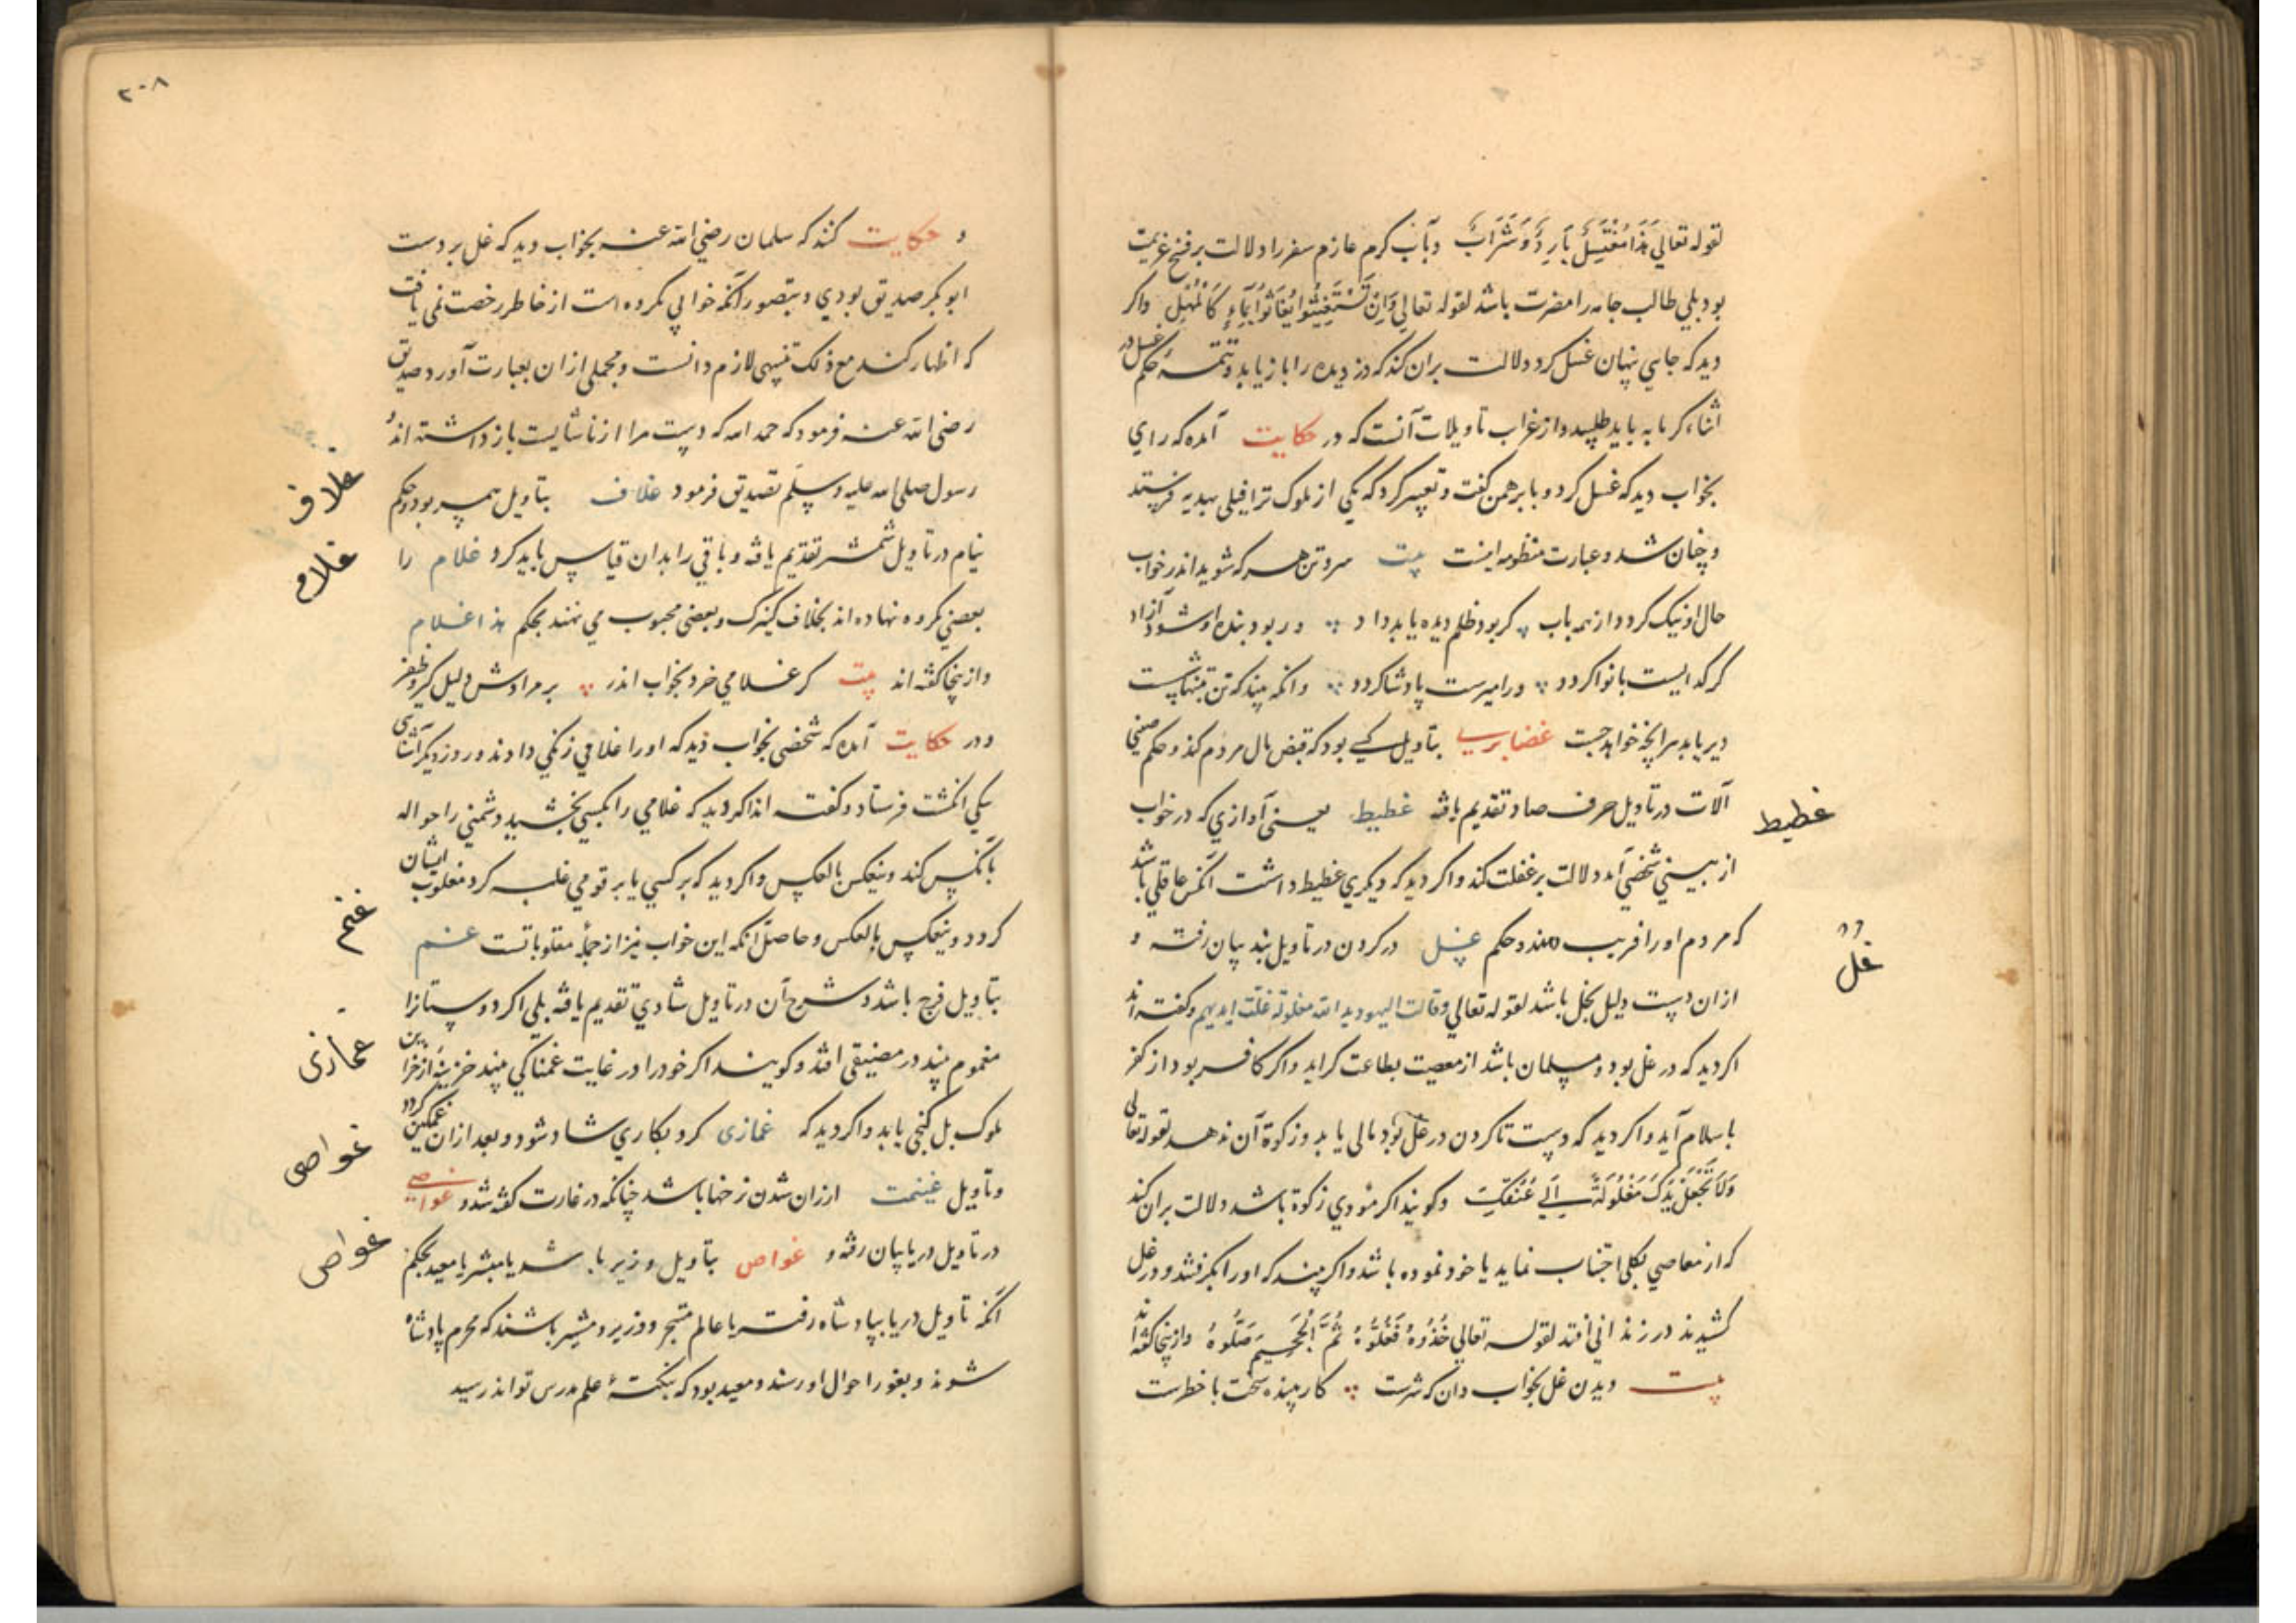 لقوله تعالي هَذَا مُغْتَسَلٌ بَارِدٌ وَشَرَابٌ و بآب گرم عازم سفر را دلالت بر فسخ عزیمت
بود بلي طالب جامه را مضرت باشد لقوله تعالي وَاِنْ تَسْتَغِيثُوا يُغَاثُوا بِمَاءٍ كَالْمُهْلِ واكر
دید که جایي پنهان غسل کرد دلالت بران کند که دزدیده را باز یابد و تتمه حکم غسل در
اثناء کرمابه باید طلبید و از غراب تاویلات آنست که در حکایت آمده که رای
بخواب دید که غسل کرد و با برهمن گفت و تعبیر کرد که یکی از ملوک ترا فیلی بهدیه فرستد
و چنان شد و عبارت منظومه اینست بیت سر و تن هر که شوید اندر خواب
حال او نیک کردد از همه باب کر بود ظلم دیده یابد داد ور بود بنده او شود آزاد
کر کداییست بانوا کردد ور امیرست پادشا کردد وانکه بیند که تن تنها شست
دیر یابد هر انچه خواهد جست غضایری بتاویل کسي بود که قبض مال مردم کند و حکم صینی
آلات در تاویل حرف صاد تقدیم یافته غطیط یعنی آوازي که در خواب
از بیني شخصي آید دلالت بر غفلت کند واکر دید که دیکري غطیط داشت آنکس عاقلي باشد
که مردم او را فریب دهند و حکم غل در کردن در تاویل بند بیان رفته و
ازان دست دلیل بخل باشد لقوله تعالي وقالت الیهود ید الله مغلولة غلت ایدیهم و گفته اند
اکر دید که در غل بود و مسلمان باشد از معصیت بطاعت کراید واکر کافر بود از کفر
باسلام آید واکر دید که دست تا کردن در غل بود مالی یابد و زکوة آن ندهد لقوله تعالی
وَلَا تَجْعَلْ يَدَكَ مَغْلُولَةً اِلَى عُنُقِكَ و کویند اکر مؤدي زکوة باشد دلالت بران کند
که از معاصي بکلی اجتناب نماید یا خود نموده باشد واکر بیند که او را بگرفتند و در غل
کشیدند در زندانی افتد لقوله تعالي خُذُوهُ فَغُلُّوهُ ثُمَّ الْجَحِيمَ صَلُّوهُ وازینجا کفته اند
بیت دیدن غل بخواب دان که شرست کار بیننده سخت با خطرست
غطیط
غل
۲۰۸
و حکایت کنند که سلمان رضي الله عنه بخواب دید که غل بر دست
ابوبکر صدیق بودي و بتصور آنکه خوابي مکروه است از خاطر رخصت نمی یافت
که اظهار کند مع ذلک تنبیهي لازم دانست و مجملی ازان بعبارت آورد صدیق
رضی الله عنه فرمود که حمد الله که دست مرا از ناشایست باز داشته اند
رسول صلی الله علیه وسلم تصدیق فرمود غلاف بتاویل همسر بود و حکم
نیام در تاویل شمشیر تقدیم یافته و باقي را بدان قیاس باید کرد غلام را
بعضي مکروه نهاده اند بخلاف کنیزک و بعضی محبوب مي نهند بحکم هذا غلام
وازینجا کفته اند بیت کر غلامي خرد بخواب اندر بر مرادش دلیل کیر و ظفر
و در حکایت آمده که شخصی بخواب دید که او را غلامي زنکي دادند و روز دیکر آشنای
یکي انکشت فرستاد و کفته اند اکر دید که غلامي را بکسي بخشید دشمني را حواله
بآنکس کند و ینعکس بالعکس واکر دید که بر کسي یا بر قومي غلبه کرد مغلوب ایشان
کردد و ینعکس بالعکس و حاصل آنکه این خواب نیز از جمله مقلوباتست غم
بتاویل فرح باشد و شرح آن در تاویل شادي تقدیم یافته بلي اکر دوستانرا
مغموم بیند در مضیقی افتد و کویند اکر خود را در غایت غمناکي بیند خزینه از خزاین
ملوک بل کنجی یابد واکر دید که غمازی کرد بکاري شاد شود و بعد ازان غمکین کردد
و تاویل غنیمت ارزان شدن نرخها باشد چنانکه در غارت کفته شد و غواصی
در تاویل دریا بیان رفته و غواص بتاویل وزیر باشد یا مشیر یا معید بحکم
آنکه تاویل دریا بپادشاه رفت یا عالم متبحر و وزیر و مشیر باشند که محرم پادشاه
شوند و بغور احوال او رسند و معید بود که بنکته علم مدرس تواند رسید
غلاف
غلام
غم
غمازی
غواصی
غواص